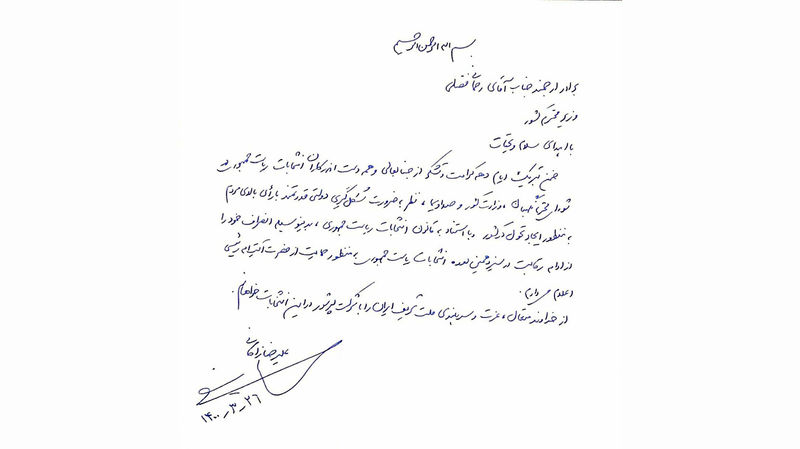 بسم الله الرحمن الرحیم
برادر ارجمند جناب آقای رحمانی فضلی
وزیر محترم کشور
با اهدای سلام و تحیات
ضمن تبریک ایام دهه کرامت و تشکر از جنابعالی و همه دست اندرکاران انتخابات ریاست جمهوری
شورای محترم نگهبان، وزارت کشور و صداوسیما، نظر به ضرورت شکل گیری دولتی قدرتمند با رأی بالای مردم
به منظور ایجاد تحول در کشور و با استناد به قانون انتخابات ریاست جمهوری، بدینوسیله انصراف خود را
از ادامه رقابت در سیزدهمین دوره انتخابات ریاست جمهوری به منظور حمایت از حضرت آیت اله رئیسی
اعلام می دارم.
از خداوند متعال، عزت و سربلندی ملت شریف ایران را با شرکت پرشور در این انتخابات خواهانم.
علیرضا زاکانی
۱۴۰۰-۳-۲۶